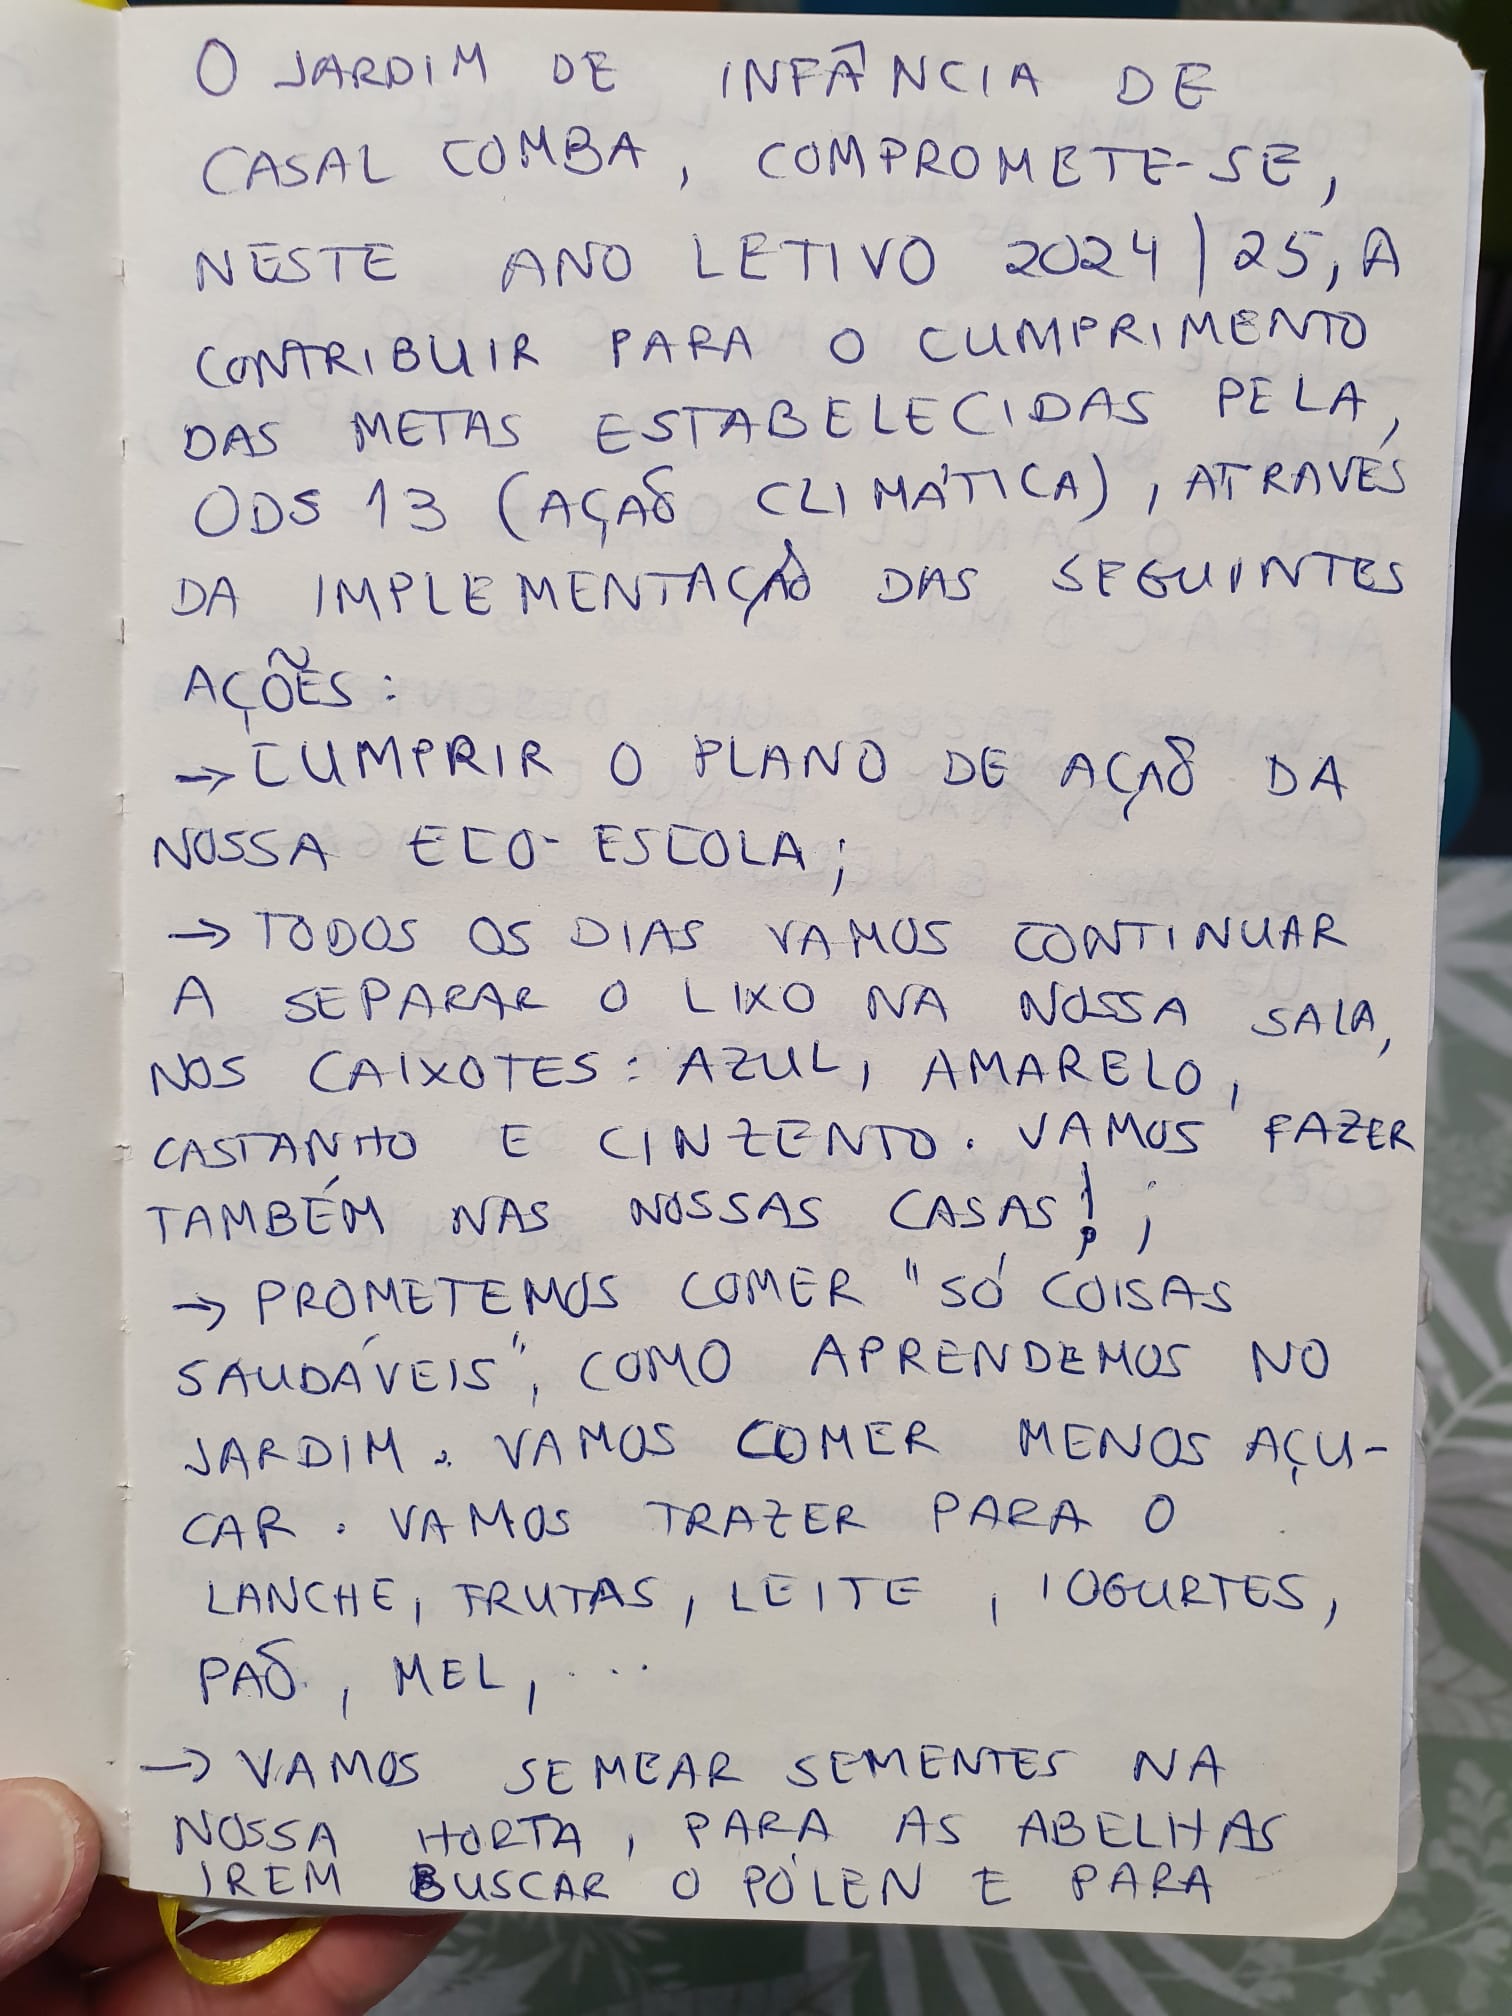 O JARDIM DE INFÂNCIA DE
CASAL COMBA, COMPROMETE-SE,
NESTE ANO LETIVO 2024/25, A
CONTRIBUIR PARA O CUMPRIMENTO
DAS METAS ESTABELECIDAS PELA,
ODS 13 (AÇÃO CLIMÁTICA), ATRAVÉS
DA IMPLEMENTAÇÃO DAS SEGUINTES
AÇÕES:
→ CUMPRIR O PLANO DE AÇÃO DA
NOSSA ECO-ESCOLA;
→ TODOS OS DIAS VAMOS CONTINUAR
A SEPARAR O LIXO NA NOSSA SALA,
NOS CAIXOTES: AZUL, AMARELO,
CASTANHO E CINZENTO. VAMOS FAZER
TAMBÉM NAS NOSSAS CASAS!;
→ PROMETEMOS COMER "SÓ COISAS
SAUDÁVEIS", COMO APRENDEMOS NO
JARDIM. VAMOS COMER MENOS AÇU-
CAR. VAMOS TRAZER PARA O
LANCHE, FRUTAS, LEITE, IOGURTES,
PÃO, MEL, ...
→ VAMOS SEMEAR SEMENTES NA
NOSSA HORTA, PARA AS ABELHAS
IREM BUSCAR O PÓLEN E PARA